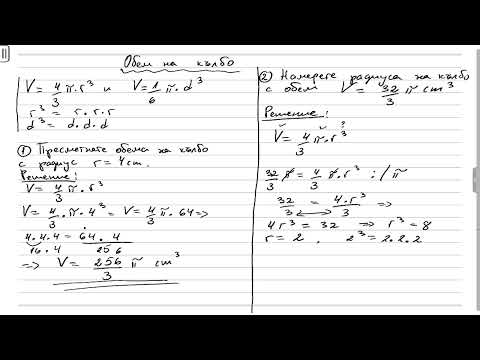 Обем на кълбо
V = 4/3 π.r³ и V = 1/6 π.d³
r³ = r.r.r
d³ = d.d.d
① Пресметнете обема на кълбо
с радиус r = 4 cm.
Решение:
V = 4/3 . π . r³
V = 4/3 . π . 4³ = V = 4/3 π . 64 =>
4.4.4 = 64 . 4
16 . 4 256
=> V = 256/3 π cm³
② Намерете радиуса на кълбо
с обем V = 32/3 π cm³
Решение:
V = 4/3 π . r³ ?
32/3 π = 4/3 π . r³ : / π
32/3 = 4.r³/3 =>
4r³ = 32 => r³ = 8
r = 2 , 2³ = 2.2.2